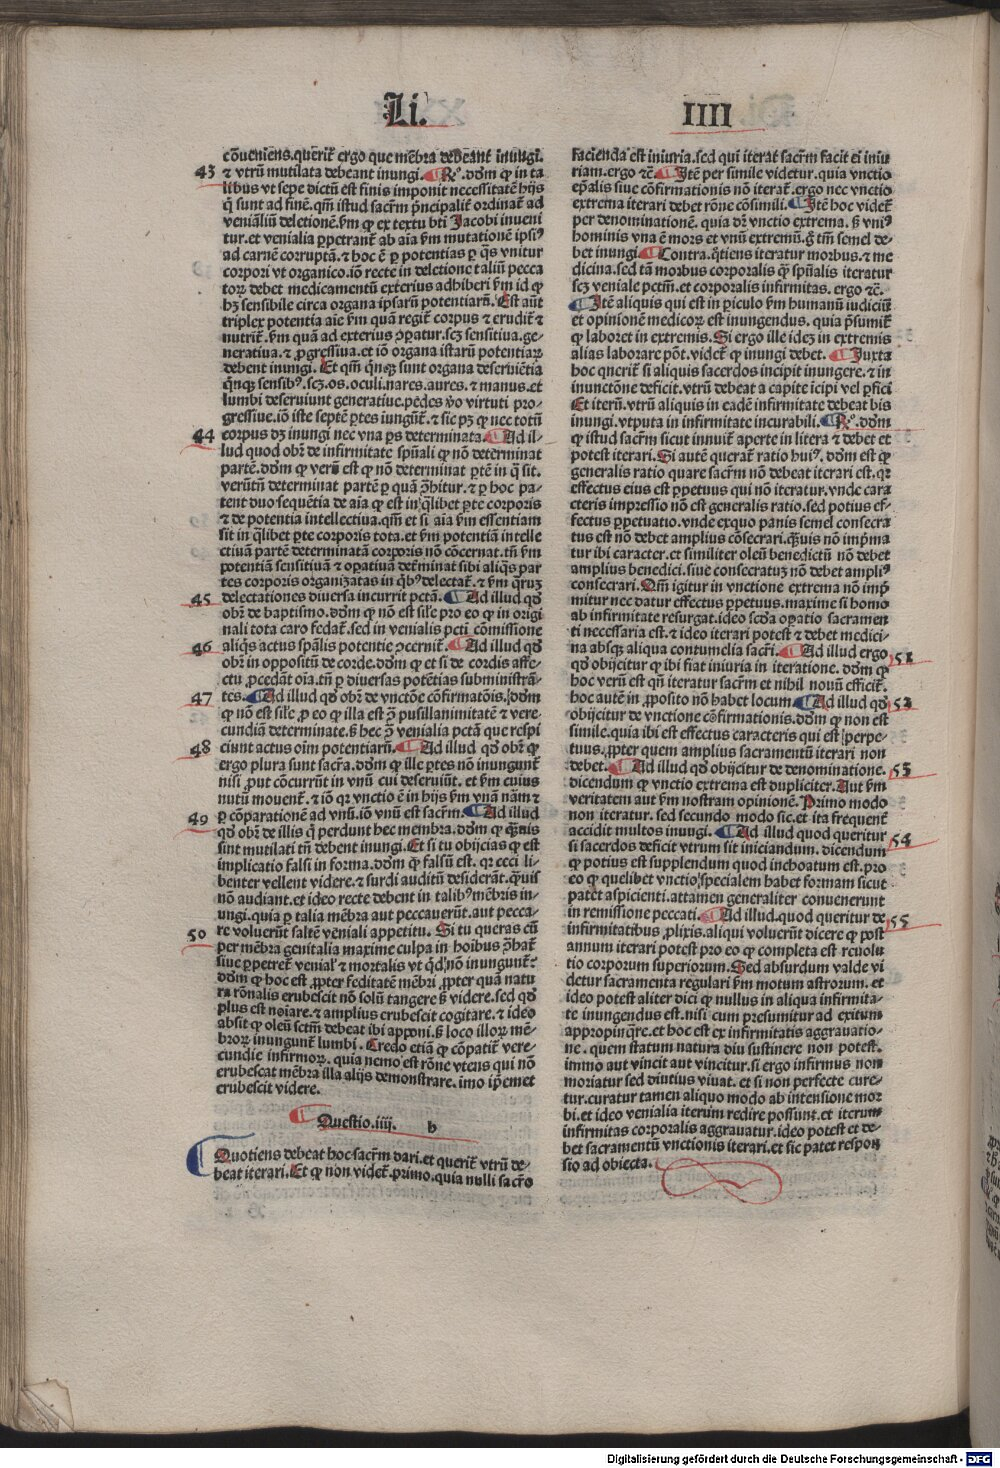 Li.
IIII
cōueniens.querit̄ ergo que mēbra debeant inungi.
43
⁊ vtrū mutilata debeant inungi. ¶ Rº. dōm ꝙ in ta
libus vt sepe dictū est finis imponit necessitatē hijs
q̄ sunt ad finē. qm̄ istud sacr̄m p̄ncipalit̄ ordinat̄ ad
venialiū deletionē. vm̄ ꝙ ex textu bt̄i Jacobi inueni
tur. et venialia ꝑpetrant̄ ab aīa vm̄ mutationē ipsiꝰ
ad carnē corruptā. ⁊ hoc ē ꝑ potentias ꝑ q̄s vnitur
corpori vt organico. iō recte in deletione taliū pecca
toꝝ debet medicamentū exterius adhiberi vm̄ id ꝙ
hꝫ sensibile circa organa ipsarū potentiarū. Est aūt
triplex potentia aīe vm̄ quā regit̄ corpus ⁊ erudit̄ ⁊
nutrit̄. vm̄ quā ad exterius oꝑatur. scꝫ sensitiua. ge-
neratiua. ⁊ ꝓgressiua. et iō organa istarū potentiaꝝ
debent inungi. Et qm̄ qn̄qꝫ sunt organa deseruiētia
qn̄qꝫ sensibꝰ. scꝫ. os. oculi. nares. aures. ⁊ manus. et
lumbi deseruiunt generatiue. pedes v̄o virtuti pro-
gressiue. iō iste septē ꝑtes iungūt̄. ⁊ sic pꝫ ꝙ nec totū
44
corpus dꝫ inungi nec vna ꝑs determinata. ¶ Ad il-
lud quod obr̄ de infirmitate spūali ꝙ nō determinat
partē. dōm ꝙ verū est ꝙ nō determinat ꝑtē in q̄ sit.
verūtn̄ determinat partē ꝑ quā ꝓhitur. ⁊ ꝑ hoc pa-
tent duo sequētia de aīa ꝙ est in q̄libet ꝑte corporis
⁊ de potentia intellectiua. qm̄ et si aīa vm̄ essentiam
sit in q̄libet ꝑte corporis tota. et vm̄ potentiā intelle
ctiuā partē determinatā corporis nō cōcernat. tn̄ vm̄
potentiā sensitiuā ⁊ oꝑatiuā det̄minat sibi aliq̄s par
tes corporis organizatas in q̄bꝰ delectat̄. ⁊ vm̄ q̄ruꝫ
45
delectationes diuersa incurrit pctā. ¶ Ad illud qd̄
obr̄ de baptismo. dōm ꝙ nō est sil'e pro eo ꝙ in origi
nali tota caro fedat̄. sed in venialis pcti cōmissione
46
aliq̄s actus sp̄alis potentie ꝓcernit̄. ¶ Ad illud qd̄
obr̄ in oppositū de corde. dōm ꝙ et si de cordis affe-
ctu ꝓcedāt oīa. tn̄ ꝑ diuersas potētias subministrā-
47
tes. ¶ Ad illud qd̄ obr̄ de vnctōe cōfirmatōis. dōm
ꝙ nō est sil'e. ꝓ eo ꝙ illa est ꝯ̄ pusillanimitatē ⁊ vere-
cundiā determinate. sꝫ hec ꝯ̄ venialia pctā que respi
48
ciunt actus oīm potentiarū. ¶ Ad illud qd̄ obr̄ ꝙ
ergo plura sunt sacrā. dōm ꝙ ille ꝑtes nō inungunt̄
nisi ꝓut cōcurrūt in vnū cui deseruiūt. et vm̄ cuius
nutū mouent̄. ⁊ iō qr vnctio ē in hijs vm̄ vnā nām ⁊
ꝑ cōparationē ad vnū. iō vnū est sacr̄m. ¶ Ad illud
49
qd̄ obr̄ de illis q̄ perdunt hec membra. dōm ꝙ q̄uis
sint mutilati tn̄ debent inungi. Et si tu obijcias ꝙ est
implicatio falsi in forma. dōm ꝙ falsū est. qr ceci li-
benter vellent videre. ⁊ surdi auditū desiderāt. q̄uis
nō audiant. et ideo recte debent in talibꝰ mēbris in-
ungi. quia ꝑ talia mēbra aut peccauerūt. aut pecca-
50
re voluerūt saltē veniali appetitu. Si tu queras cū
per mēbra genitalia maxime culpa in hoībus ꝓhat̄
siue ꝑpetret̄ venial' ⁊ mortalis vt q̄d nō inungunt̄?
dōm ꝙ hoc est ꝓpter feditatē mēbri ꝓpter quā natu
ra rōnalis erubescit nō solū tangere sꝫ videre. sed qd̄
plus est noīare. ⁊ amplius erubescit cogitare. ⁊ ideo
absit ꝙ oleū sctm̄ debeat ibi apponi. sꝫ loco illoꝝ mē-
broꝝ inungunt̄ lumbi. Credo etiā ꝙ cōpatit̄ vere-
cundie infirmoꝝ. quia nemo est rōne vtens qui nō
erubescat mēbra illa alijs demonstrare. imo īpemet
erubescit videre.
¶ Questio. iiij. b
Quotiens debeat hoc sacr̄m dari. et querit̄ vtrū de-
beat iterari. Et ꝙ non videt̄. primo. quia nulli sacr̄o
facienda est iniuria. sed qui iterat sacr̄m facit ei iniu
riam. ergo ⁊c̄. ¶ Itē per simile videtur. quia vnctio
ep̄alis siue cōfirmationis nō iterat̄. ergo nec vnctio
extrema iterari debet rōne cōsimili. ¶ Itē hoc videt̄
per denominationē. quia dr̄ vnctio extrema. sꝫ vniꝰ
hominis vna ē mors et vnū extremū. g̊ tm̄ semel de-
bet inungi. ¶ Contra. q̄tiens iteratur morbus. ⁊ me
dicina. sed tā morbus corporalis q̄ sp̄ualis iteratur
scꝫ veniale pctm̄. et corporalis infirmitas. ergo ⁊c̄.
¶ Itē aliquis qui est in ꝑiculo vm̄ humanū iudiciū
et opinionē medicoꝝ est inungendus. quia p̄sumit̄
ꝙ laboret in extremis. Si ergo ille ideꝫ in extremis
alias laborare pōt. videt̄ ꝙ inungi debet. ¶ Juxta
hoc querit̄ si aliquis sacerdos incipit inungere. ⁊ in
inunctōne deficit. vtrū debeat a capite īcipi vel ꝑfici
Et iterū. vtrū aliquis in eadē infirmitate debeat bis
inungi. vtputa in infirmitate incurabili. ¶ Rº. dōm
ꝙ istud sacr̄m sicut innuit̄ aperte in litera ⁊ debet et
potest iterari. Si autē querat̄ ratio huiꝰ. dōm est ꝙ
generalis ratio quare sacr̄m nō debeat iterari est. qr
effectus eius est ꝑpetuus qui nō iteratur. vnde cara
cteris impressio nō est generalis ratio. sed potius ef-
fectus ꝑpetuatio. vnde exquo panis semel consecra
tus est nō debet amplius cōsecrari. q̄uis nō imp̄ma
tur ibi caracter. et similiter oleū benedictū nō debet
amplius benedici. siue consecratuꝫ nō debet ampliꝰ
consecrari. Qm̄ igitur in vnctione extrema nō imp̄
mitur nec datur effectus ꝑpetuus. maxime si homo
ab infirmitate resurgat. ideo scd̄a oꝑatio sacramen
ti necessaria est. ⁊ ideo iterari potest ⁊ debet medici-
na absqꝫ aliqua contumelia sacr̄i. ¶ Ad illud ergo
51
qd̄ obijcitur ꝙ ibi fiat iniuria in iteratione. dōm ꝙ
hoc verū est qn̄ iteratur sacr̄m et nihil nouū efficit̄.
hoc autē in ꝓposito nō habet locum. ¶ Ad illud qd̄
52
obijcitur de vnctione cōfirmationis. dōm ꝙ non est
simile. quia ibi est effectus caracteris qui est perpe-
tuus. ꝓpter quem amplius sacramentū iterari non
debet. ¶ Ad illud qd̄ obijcitur de denominatione.
53
dicendum ꝙ vnctio extrema est dupliciter. Aut vm̄
veritatem aut vm̄ nostram opinionē. Primo modo
non iteratur. sed secundo modo sic. et ita frequent̄
accidit multos inungi. ¶ Ad illud quod queritur
54
si sacerdos deficit vtrum sit iniciandum. dicendum
ꝙ potius est supplendum quod inchoatum est. pro
eo ꝙ quelibet vnctio specialem habet formam sicut
patet aspicienti. attamen generaliter conuenerunt
in remissione peccati. ¶ Ad illud. quod queritur de
55
infirmitatibus ꝓlixis. aliqui voluerūt dicere ꝙ post
annum iterari potest pro eo ꝙ completa est reuolu
tio corporum superiorum. Sed absurdum valde vi
detur sacramenta regulari vm̄ motum astrorum. et
ideo potest aliter dici ꝙ nullus in aliqua infirmita-
te inungendus est. nisi cum presumitur ad exitum
appropinq̄re. et hoc est ex infirmitatis aggrauatio-
ne. quem statum natura diu sustinere non potest.
immo aut vincit aut vincitur. si ergo infirmus non
moriatur sed diutius viuat. et si non perfecte cure-
tur. curatur tamen aliquo modo ab intensione mor
bi. et ideo venialia iterum redire possunt. et iterum
infirmitas corporalis aggrauatur. ideo potest et de-
bet sacramentū vnctionis iterari. et sic patet respon
sio ad obiecta.
Digitalisierung gefördert durch die Deutsche Forschungsgemeinschaft - DFG